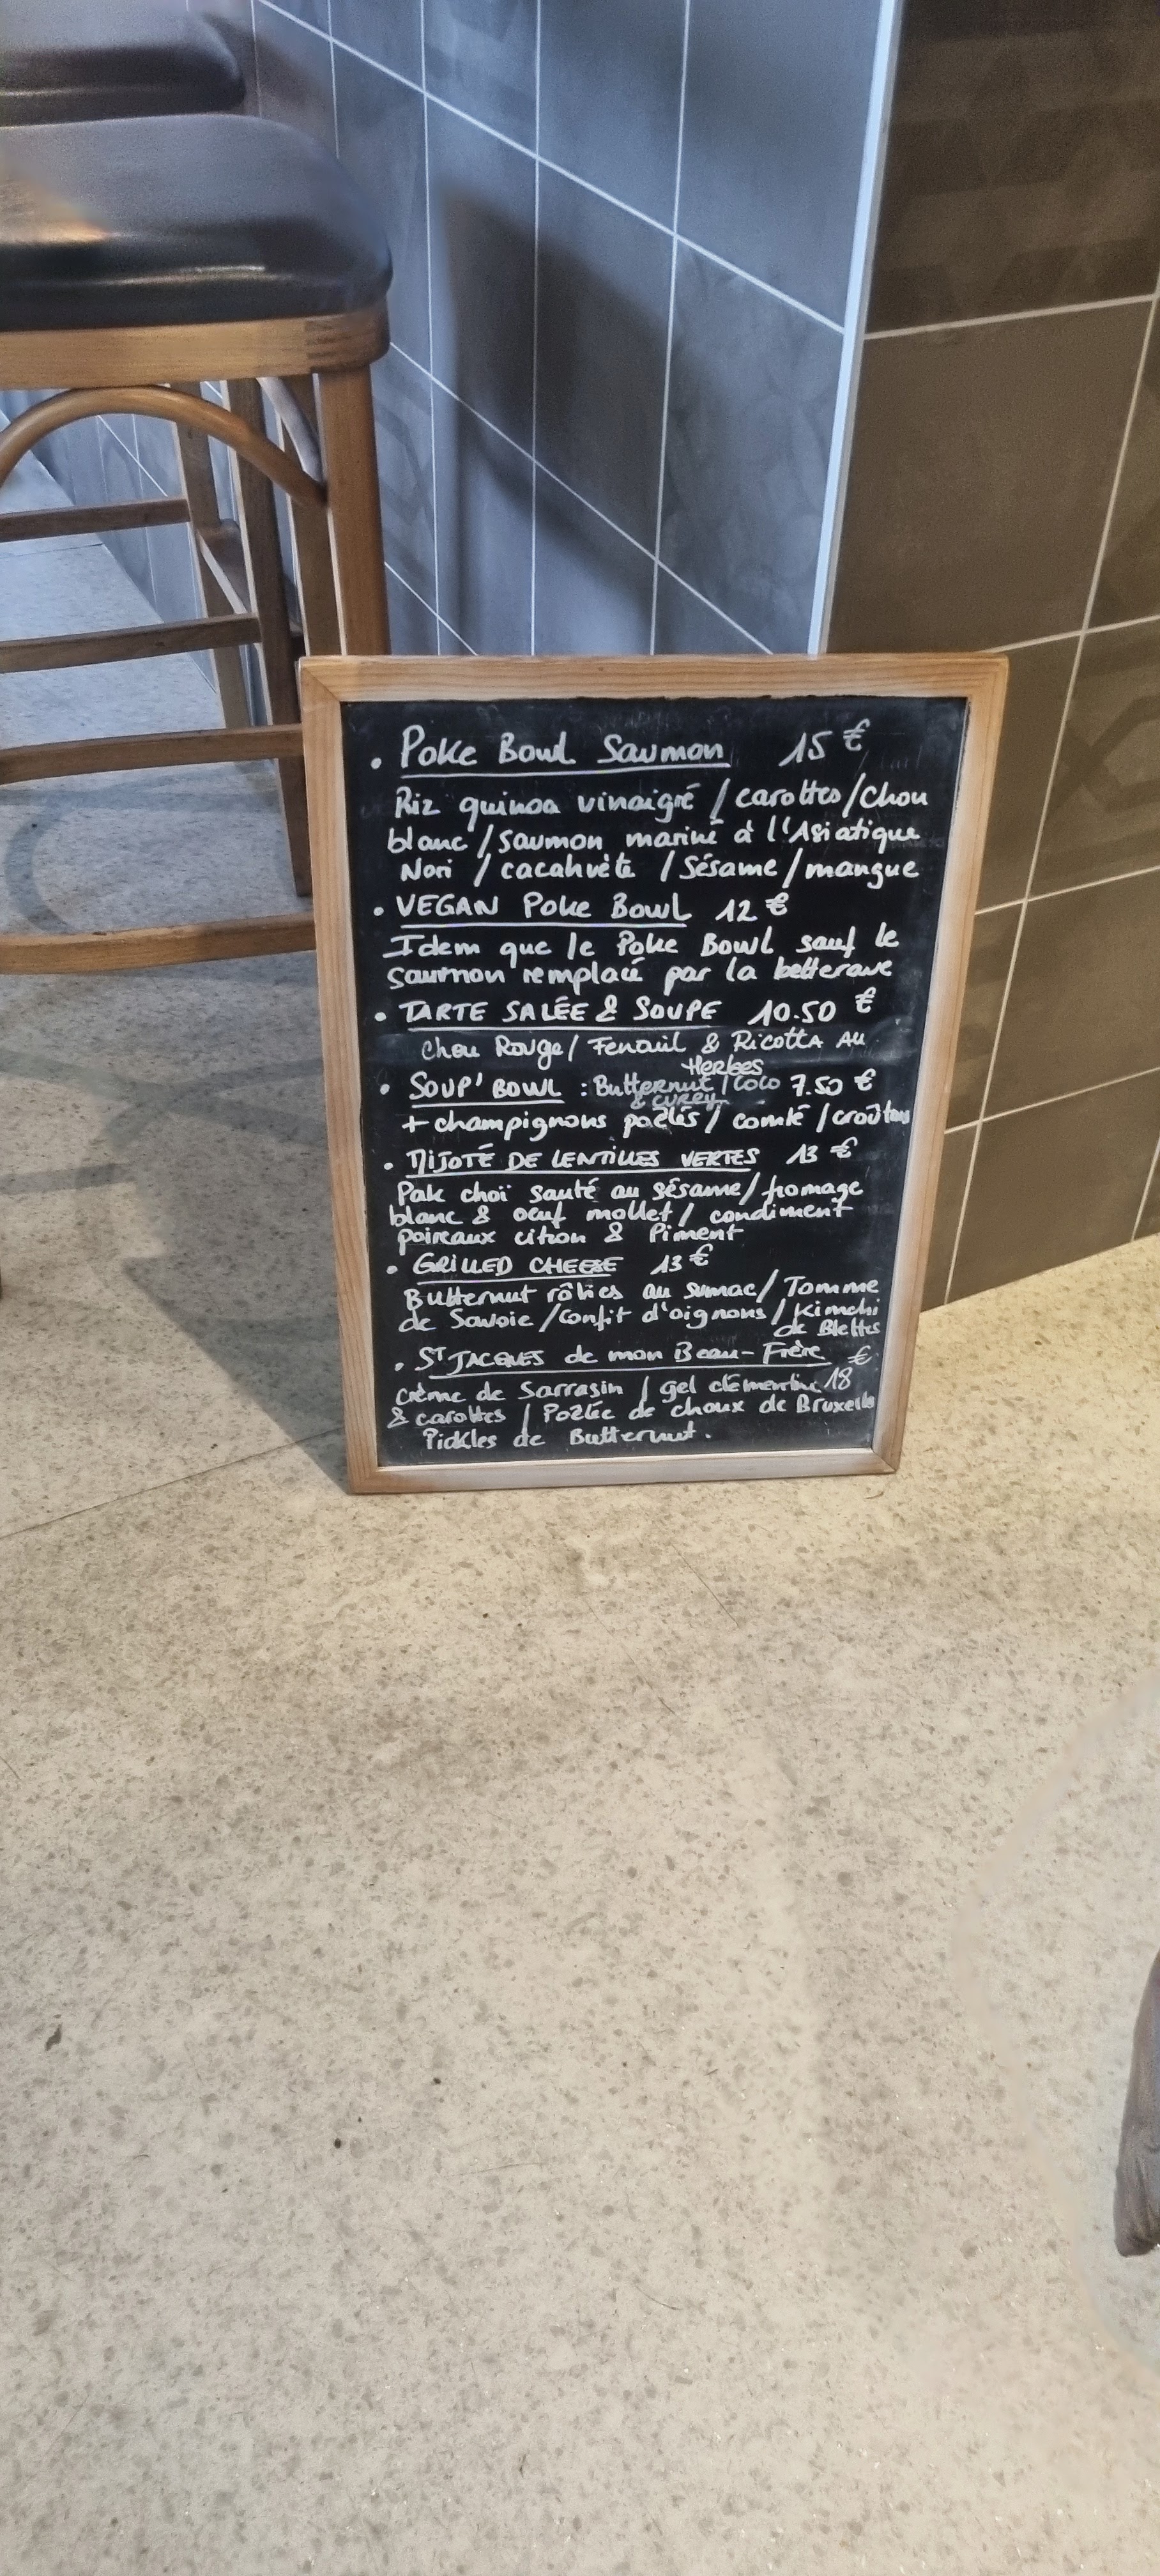 • Poke Bowl Saumon 15 €
Riz quinoa vinaigré / carottes / chou
blanc / saumon mariné à l'Asiatique
Nori / cacahuète / Sésame / mangue
• VEGAN Poke Bowl 12 €
Idem que le Poke Bowl sauf le
saumon remplacé par la betterave
• TARTE SALÉE & SOUPE 10.50 €
Chou Rouge / Fenouil & Ricotta AU
Herbes
• SOUP' BOWL : Butternut / Coco 7.50 €
& curry
+ champignons poêlés / comté / croûtons
• MIJOTÉ DE LENTILLES VERTES 13 €
Pak choï sauté au sésame / fromage
blanc & oeuf mollet / condiment
poireaux citron & Piment
• GRILLED CHEESE 13 €
Butternut rôties au sumac / Tomme
de Savoie / Confit d'oignons / Kimchi
de Blettes
• ST JACQUES de mon Beau-Frère €
Crème de Sarrasin / gel clémentine 18
& carottes / Poêlée de choux de Bruxelles
Pickles de Butternut.